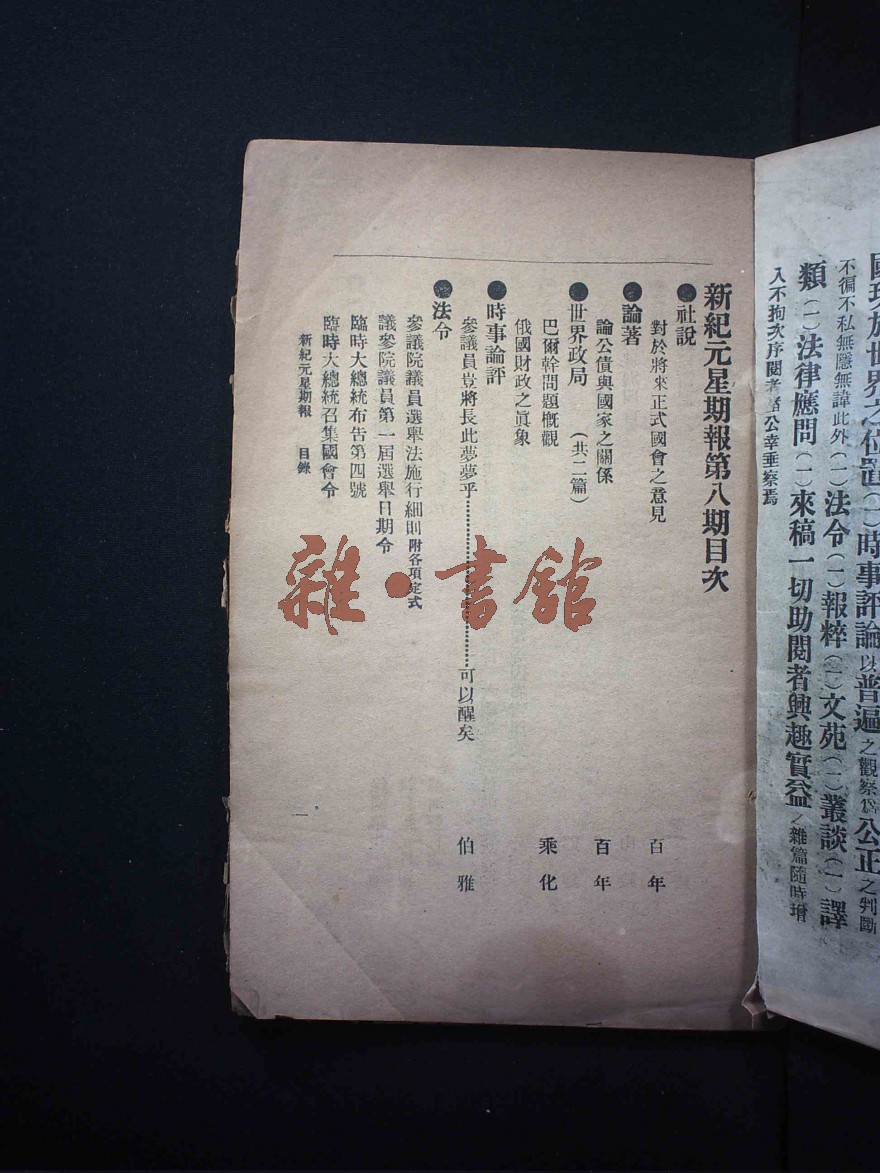 不徧不私無隱無諱此外（一）法令（一）報粹（一）文苑（一）叢談（一）譯
類（一）法律應問（一）來稿一切助閱者興趣實益
雜篇隨時增
入不拘次序閱者諸公幸垂察焉
新紀元星期報第八期目次
●社說
對於將來正式國會之意見 百年
●論著
論公債與國家之關係 百年
●世界政局 （共二篇）
巴爾幹問題概觀 乘化
俄國財政之眞象
●時事論評
參議員豈將長此夢夢乎⋯⋯⋯⋯⋯⋯⋯⋯可以醒矣 伯雅
●法令
參議院議員選舉法施行細則附各項定式
議參院議員第一屆選舉日期令
臨時大總統布告第四號
臨時大總統召集國會令
新紀元星期報 目錄 一
雜·書館